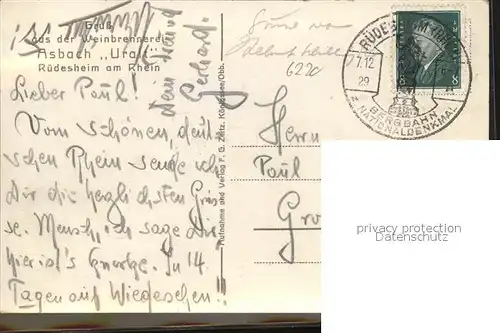 Gruß
aus der Weinbrennerei
Asbach „Uralt“
Rüdesheim am Rhein
Lieber Paul!
Vom schönen, deut-
schen Rhein sende ich
Dir die herzlichsten Grüs-
se. Mensch, ich sage Dir
hier ist's knorke. In 14
Tagen auf Wiedersehen!!
Dein Freund
Gerhard
Aufnahme und Verlag F. G. Zeitz, Königsee/Thür.
6220
RÜDESHEIM
7.12
29
BERGBAHN
z. NATIONALDENKMAL
8 8
Herrn
Paul
Gro
privacy protection
Datenschutz